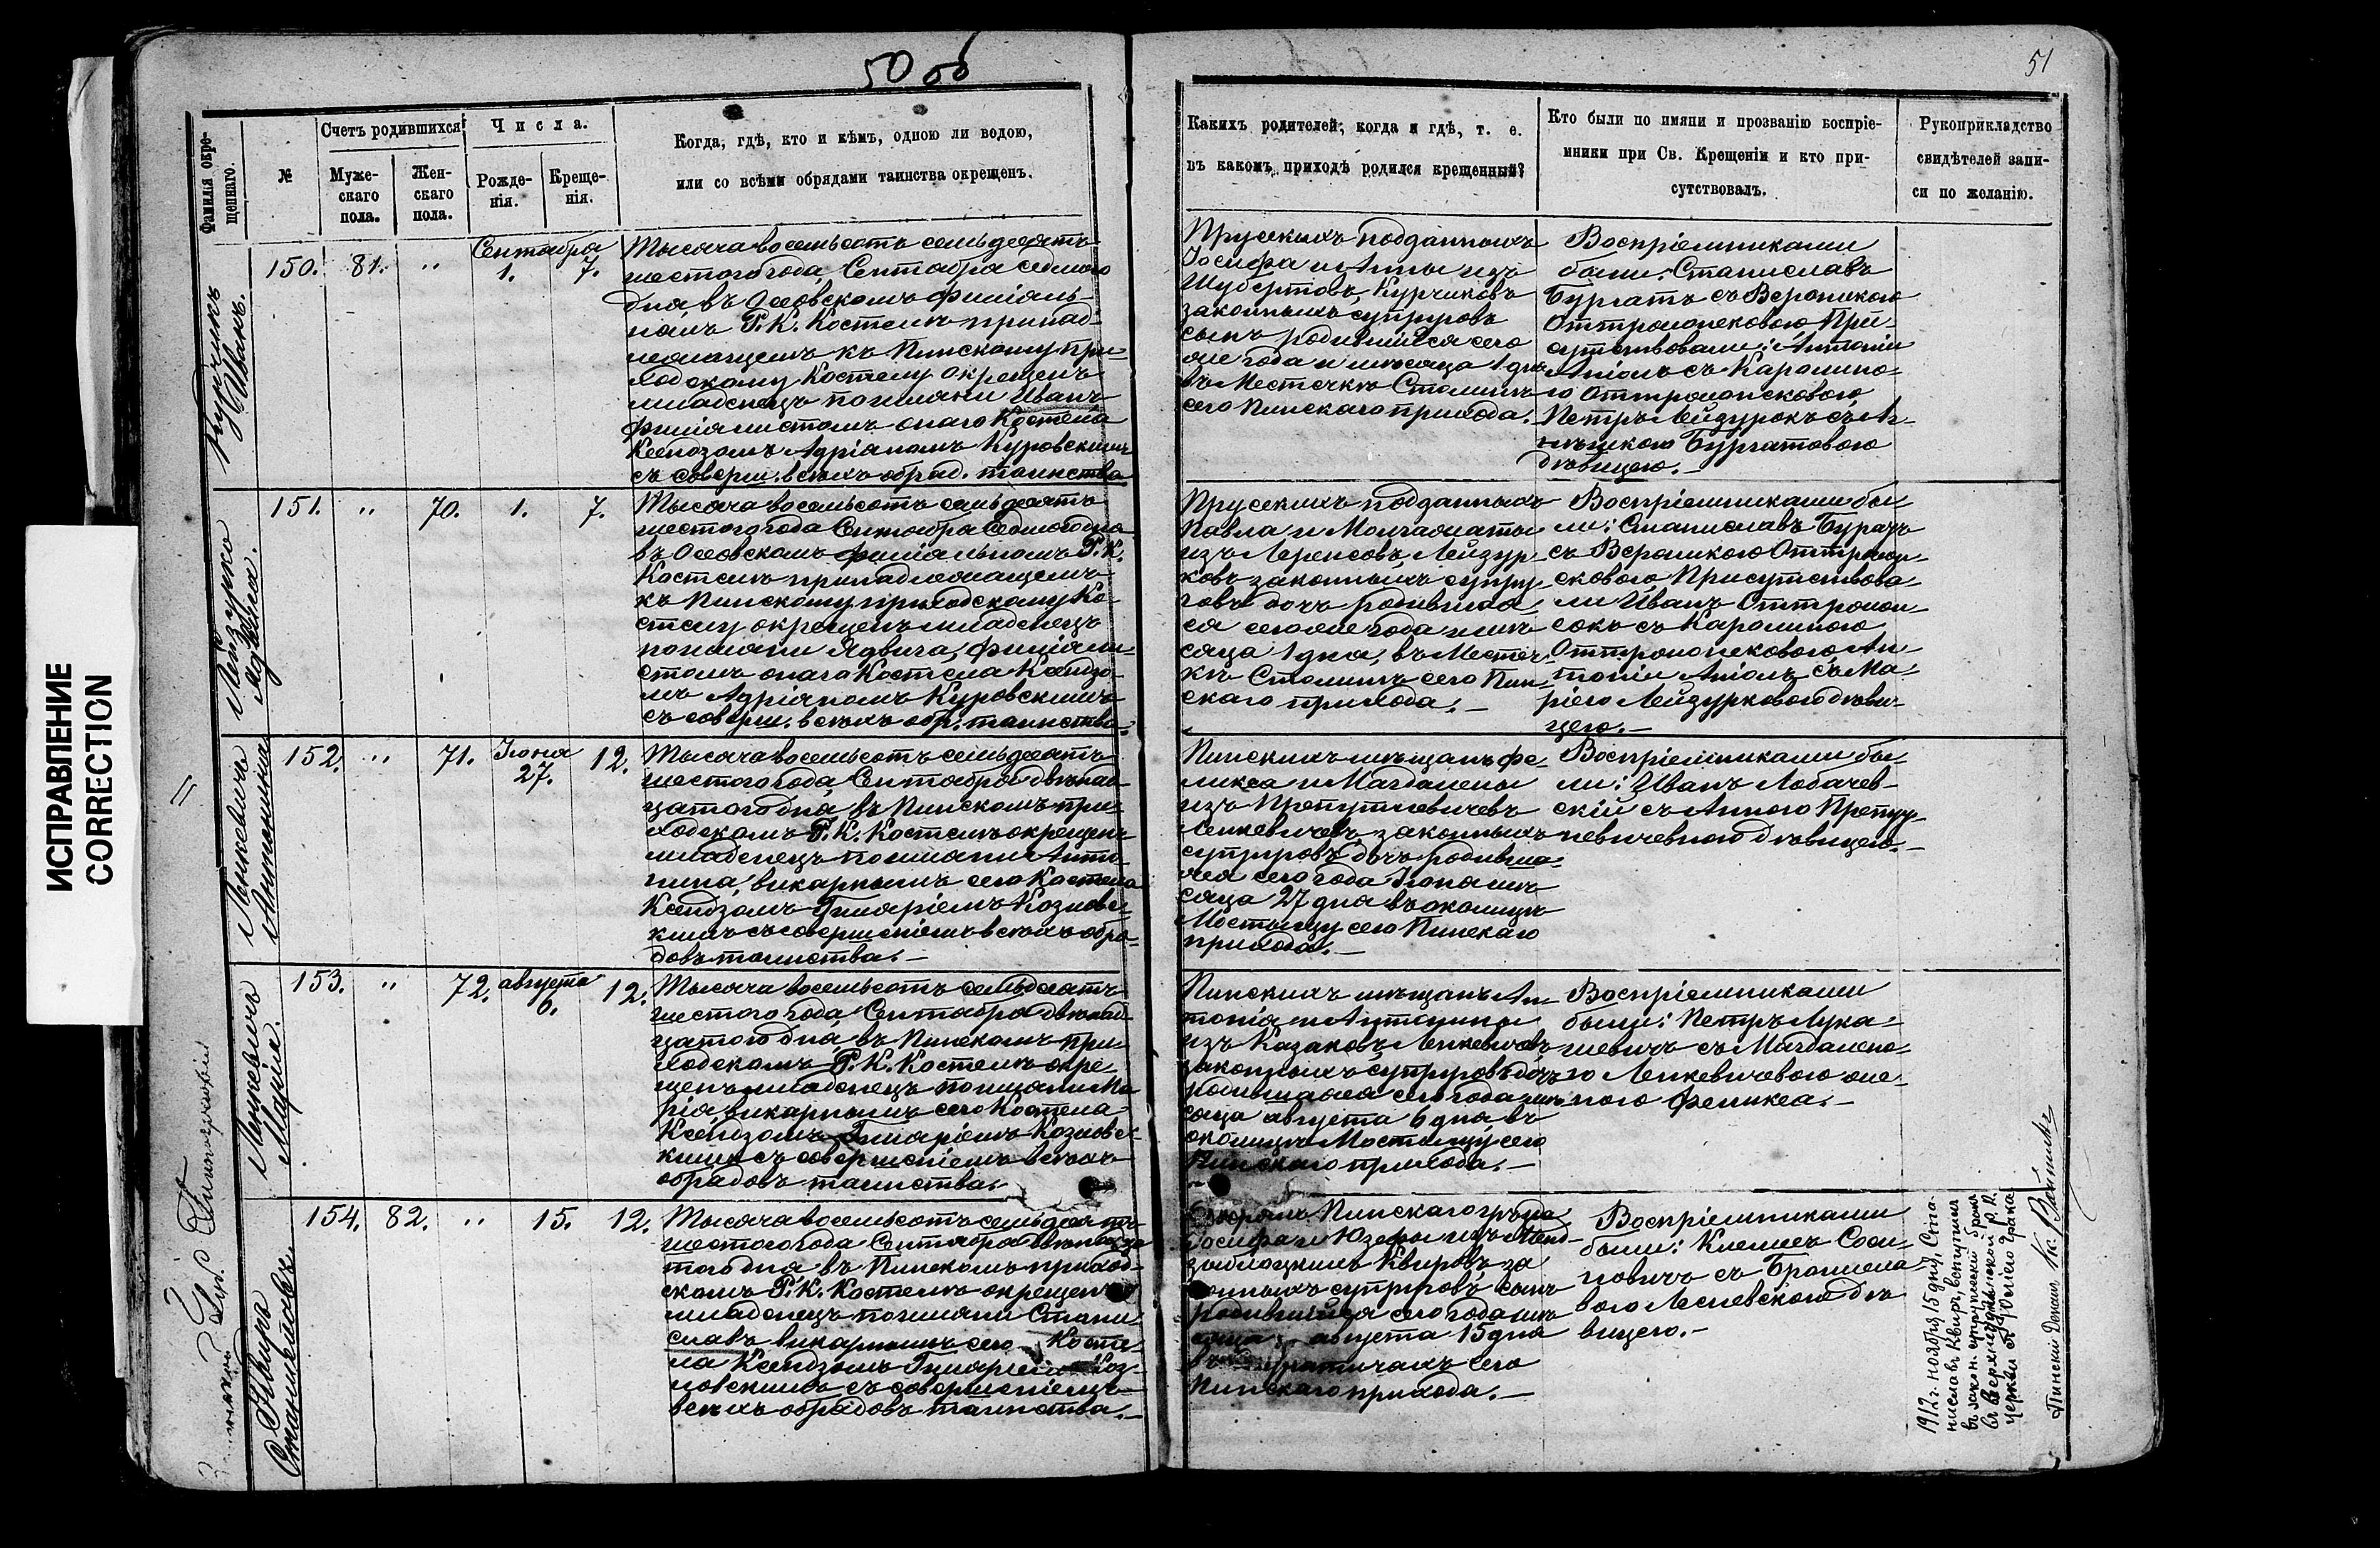 50 об
51
ИСПРАВЛЕНИЕ
CORRECTION
Фамилія окре-
щеннаго.
№
Счетъ родившихся
Муже-
скаго
пола.
Жен-
скаго
пола.
Числа.
Рожде-
нія.
Креще-
нія.
Когда, гдѣ, кто и кѣмъ, одною ли водою,
или со всѣми обрядами таинства окрещенъ.
Каких родителей; когда и гдѣ, т. е.
въ какомъ приходѣ родился крещенный?
Кто были по имяни и прозванію воспріе-
мники при Св. Крещеніи и кто при-
сутствовалъ.
Рукоприкладство
свидѣтелей запи-
си по желанію.
Курчикъ
Иванъ.
150. 81. " Сентября
1. 7.
Тысяча восемьсотъ семьдесятъ
шестого года, Сентября седьмого
дня, въ Осовскомъ филіаль-
номъ Р. К. Костелѣ принад-
лежащемъ къ Пинскому при-
ходскому Костелу окрещенъ
младенецъ по имяни Иванъ
филіалистомъ онаго Костела
Ксендзомъ Адріаномъ Куровскимъ
съ соверш. всѣхъ обряд. таинства
Прусскихъ подданныхъ
Іосифа и Анны изъ
Шубертовъ Курчиковъ
законныхъ супруговъ
сынъ родившійся сего
же года и мѣсяца 1 дня
въ Местечкѣ Столинѣ
сего Пинскаго прихода.
Воспріемниками
были: Станиславъ
Бургатъ съ Вероникою
Оттромонековою При-
сутствовали: Антоній
Аніолъ съ Каролино-
ю Оттромонсковою
Петръ Лейзурокъ съ Аг-
нѣшкою Бургатовою
дѣвицею.
Лейзурко
Ядвига.
151. " 70. 1. 7.
Тысяча восемьсотъ семьдесятъ
шестого года Сентября седмого дня
въ Осовскомъ филіальномъ Р. К.
Костелѣ принадлежащемъ
къ Пинскому приходскому Ко-
стелу окрещенъ младенецъ
по имяни Ядвига, филіали-
стомъ онаго Костела Ксендзо-
мъ Адріаномъ Куровскимъ
съ соверш. всѣхъ обр. таинства.
Прусскихъ подданныхъ
Павла и Малгожаты
изъ Лоренсовъ Лейзур-
ковъ законныхъ супру-
говъ дочь родившая
ся сего же года и мѣ-
сяца 1 дня, въ Местеч-
кѣ Столинѣ сего Пин-
скаго прихода.
Воспріемниками бы-
ли: Станиславъ Бурачъ
съ Вероникою Оттромон-
сковою Присутствова-
ли Иванъ Оттромон
сокъ съ Каролиною
Оттромонсковою Ан-
тоній Аніолъ съ Ма-
ріею Лейзурковою дѣви-
цею.
Ленкевичъ
Антонина
152. " 71. Іюня
27. 12.
Тысяча восемьсотъ семьдесятъ
шестого года, Сентября двѣнад-
цатого дня, въ Пинскомъ при-
ходскомъ Р. К. Костелѣ окрещенъ
младенецъ по имяни Анто-
нина, викарнымъ сего Костела
Ксендзомъ Гиляріемъ Козловс-
кимъ съ совершеніемъ всѣхъ обря-
довъ таинства.
Пинскихъ мѣщанъ Фе-
ликса и Магдалены
изъ Препутневичевъ
Ленкевичевъ законныхъ
супруговъ дочь родивша-
яся сего года Іюня мѣ-
сяца 27 дня въ околицѣ
Мостыщу сего Пинскаго
прихода.
Воспріемниками бы-
ли: Иванъ Лобачев-
скій съ Анною Препут-
невичевною дѣвицею.
Ленкевичъ
Марія.
153. " 72. августа
6. 12.
Тысяча восемьсотъ семьдесятъ
шестого года Сентября двѣнад-
цатого дня, въ Пинскомъ при-
ходскомъ Р. К. Костелѣ окре-
щенъ младенецъ по имяни Ма-
рія, викарнымъ сего Костела
Ксендзомъ Гиляріемъ Козловс-
кимъ съ совершеніемъ всѣхъ
обрядовъ таинства.
Пинскихъ мѣщанъ Ан-
тонія и Антонины
изъ Казаковъ Ленкевичевъ
законныхъ супруговъ дочь
родившаяся сего года мѣ-
сяца августа 6 дня, въ
околицѣ Мостыщу сего
Пинскаго прихода.
Воспріемниками
были: Петръ Лука-
шевичъ съ Магдалено-
ю Ленкевичевою же-
ною Феликса.
Квира
Станиславъ
154. 82. " 15. 12.
Тысяча восемьсотъ семьдесятъ
шестого года Сентября двѣнадца
того дня въ Пинскомъ приход-
скомъ Р. К. Костелѣ окрещенъ
младенецъ по имяни Стани
славъ викарнымъ сего Косте-
ла Ксендзомъ Гиляріемъ Коз-
ловскимъ съ совершеніемъ
всѣхъ обрядовъ таинства.
Пинскаго
Іосифа и Юзефы изъ
Квировъ за
конныхъ супруговъ сынъ
родившійся сего года мѣ
сяца августа 15 дня
сего
Пинскаго прихода.
Воспріемниками
были: Клеменс Соси-
новичъ съ Бронисла
вою Лесневскою дѣ
вицею.
1912 г. ноября 15 дня, Ста-
ниславъ Квира, вступилъ
въ закон. супружескій бракъ
въ Р. К.
церкви съ
Пинскій Деканъ Кс.